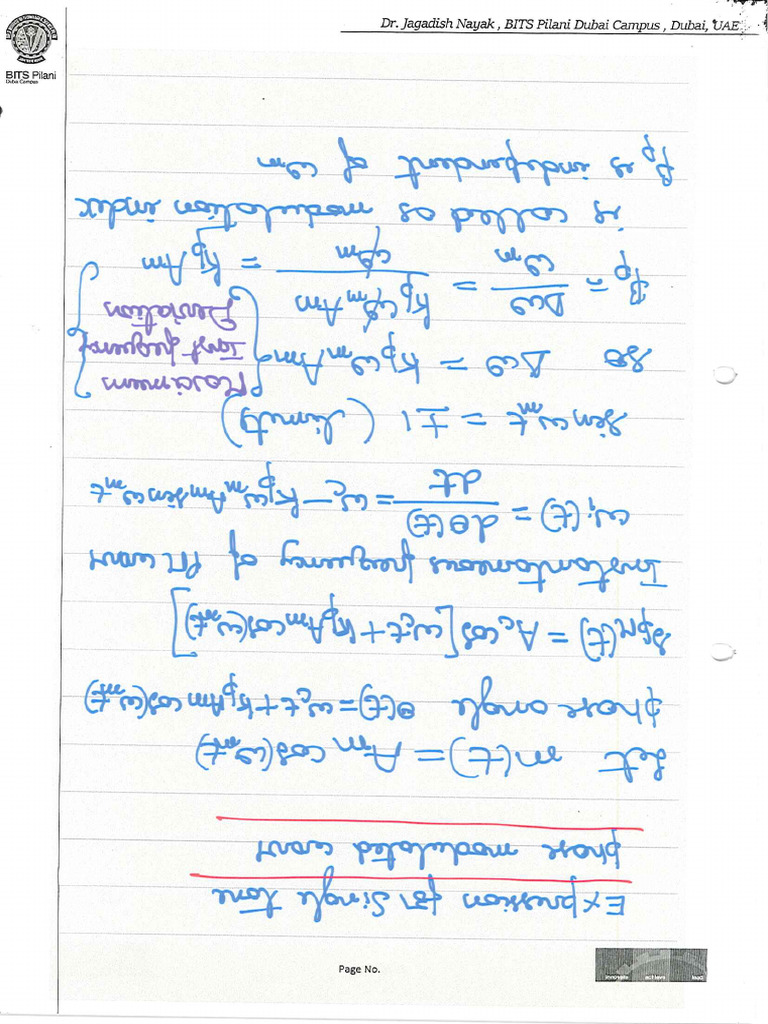 Dr. Jagadish Nayak , BITS Pilani Dubai Campus , Dubai, UAE
BITS Pilani
Dubai Campus
Expression for Single tone
phase modulated wave
Let m(t) = Am cos(ωmt)
phase angle θ(t) = ωct + KpAm cos(ωmt)
SPM(t) = Ac cos[ωct + KpAm cos(ωmt)]
Instantaneous frequency of PM wave
ωi(t) = dθ(t)/dt = ωc - Kpωm Am sin ωmt
sin ωmt = ±1 (limits)
so Δω = Kp ωm Am {Maximum Inst frequency Deviation}
βp = Δω/ωm = Kp ωm Am/ωm = Kp Am
is called as modulation index
βp is independent of ωm
Page No.
innovate achieve lead